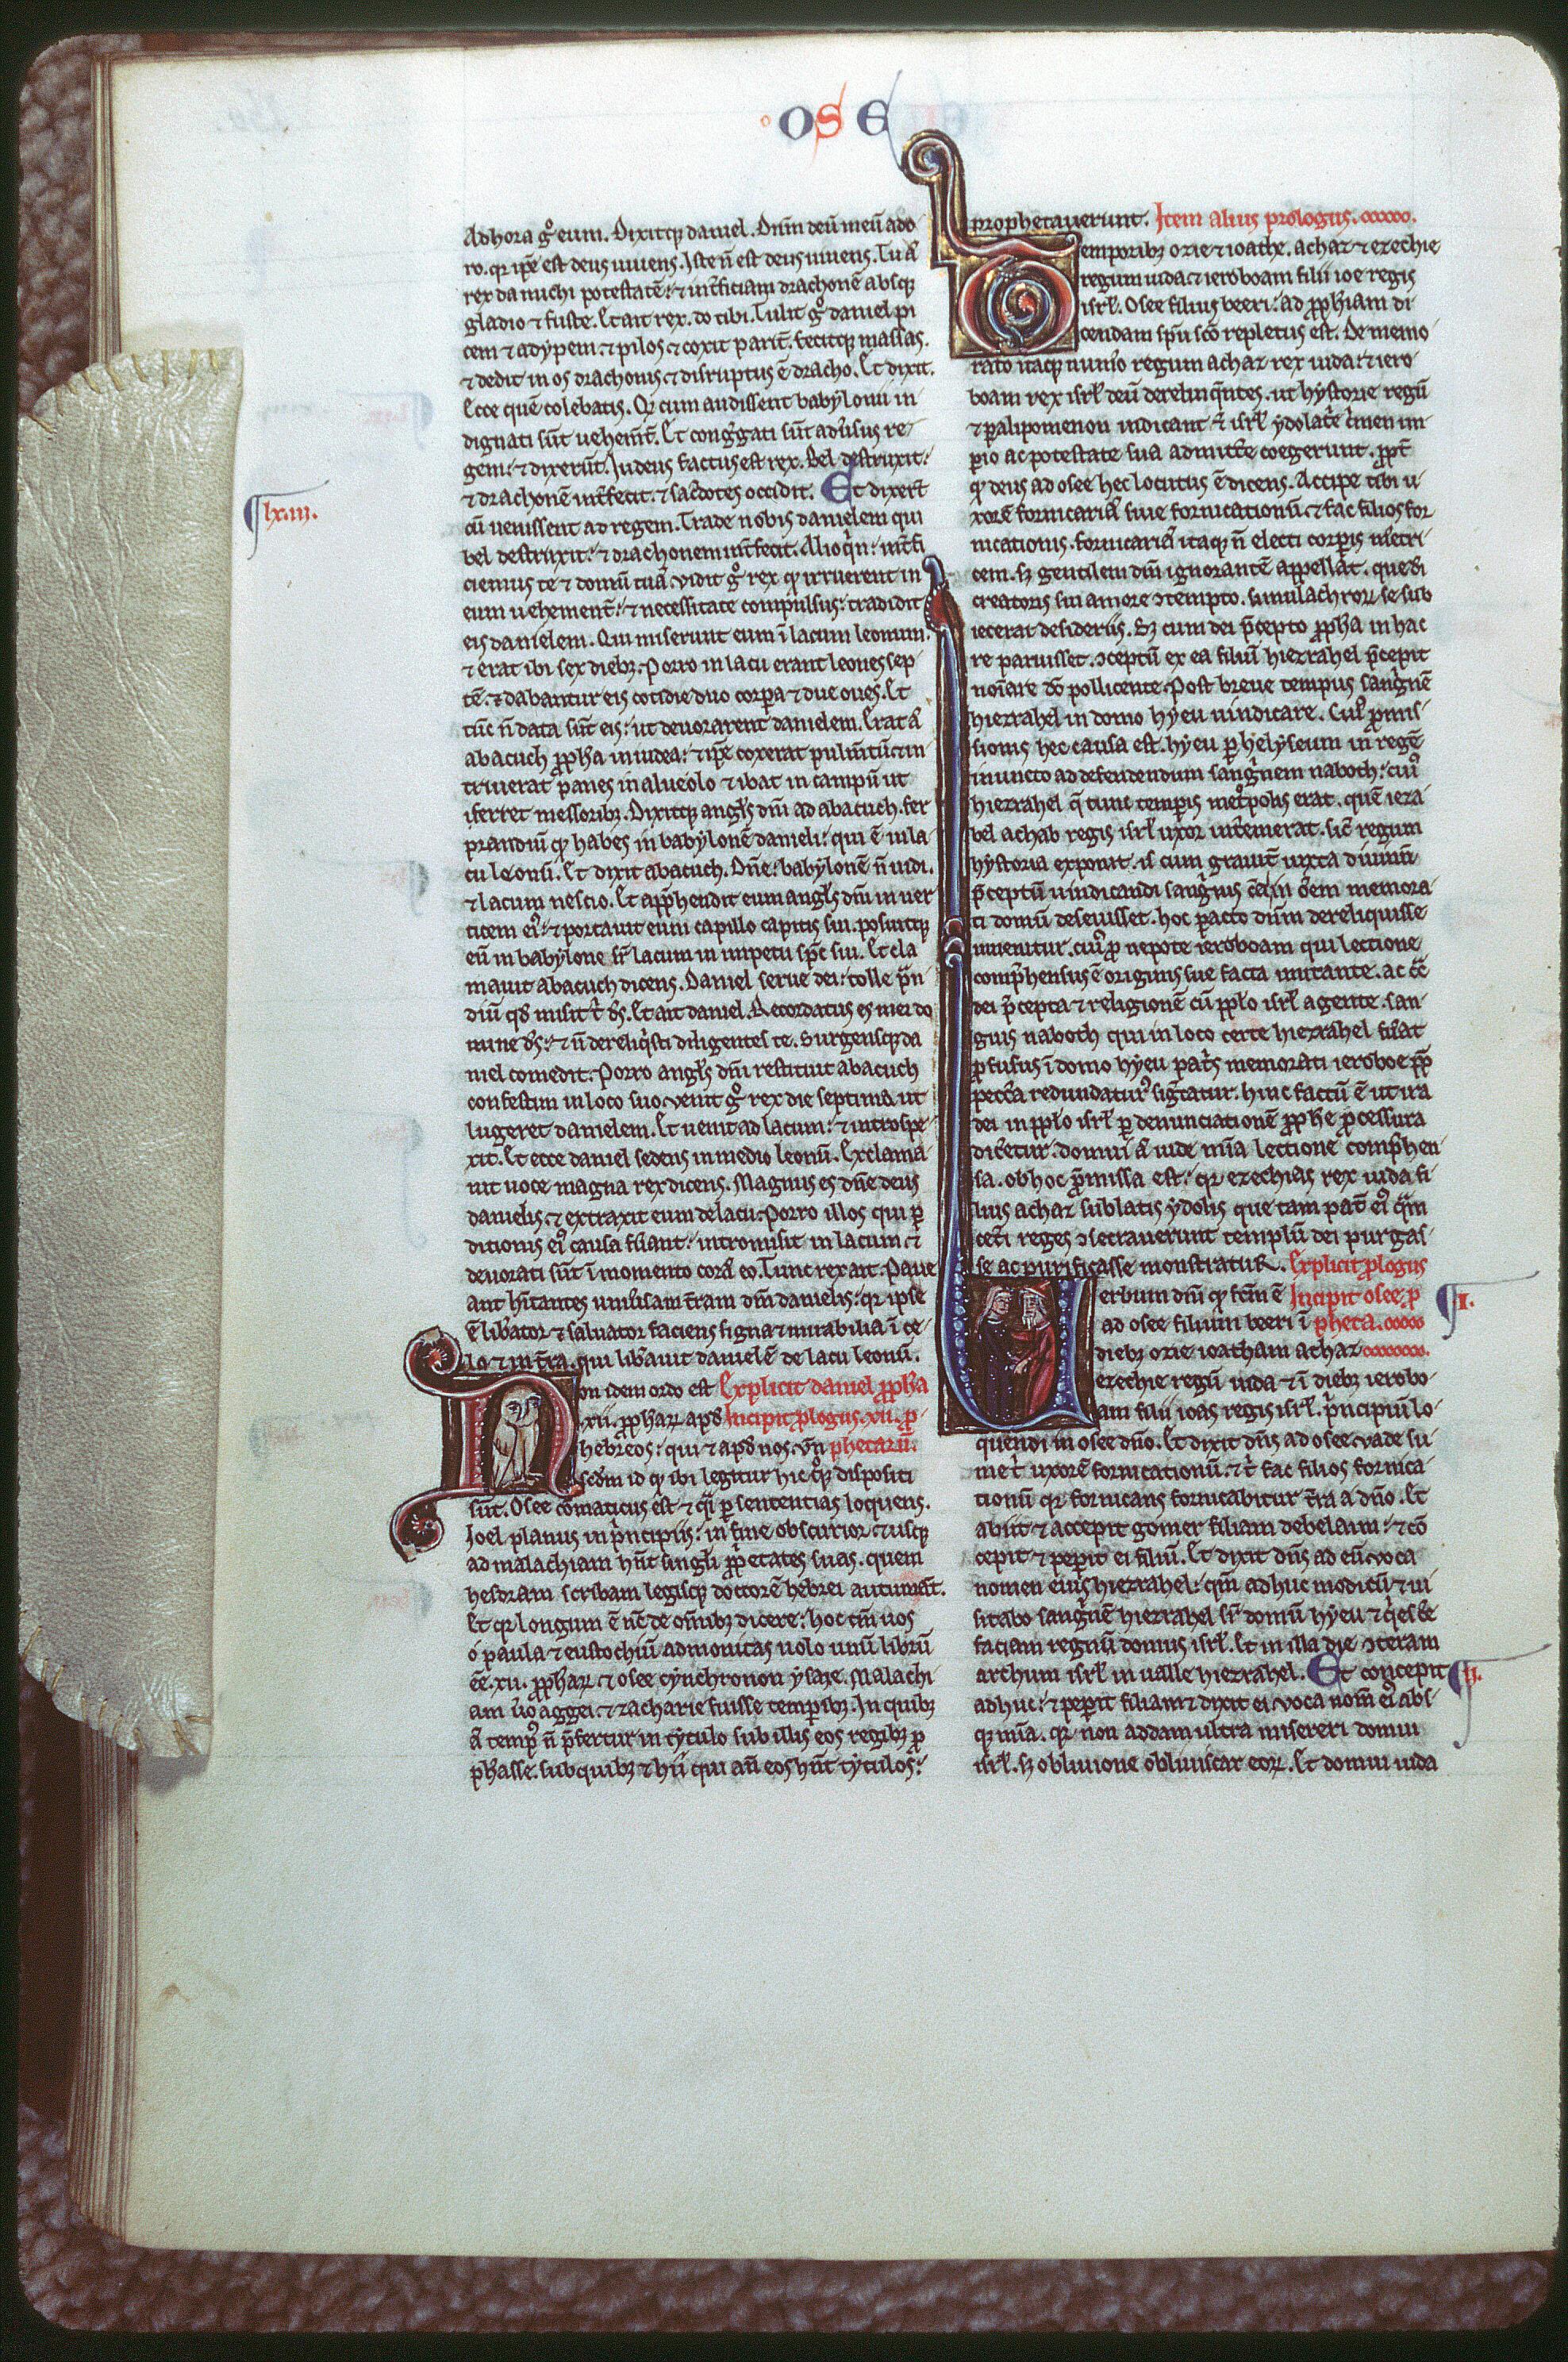 OSE
Ad hora g̊ eum. Dixitq; daniel. Dn̄m deū meū ado
ro. qr ip̄e est deus uiuens. Iste n̄ est deus uiuens. Tu ā
rex da michi potestatē: ⁊ int̄ficiam drachonē absq;
gladio ⁊ fuste. Et ait rex. do tibi. Tulit g̊ daniel pi
cem ⁊ adypem. ⁊ pilos ⁊ coxit parit̄. fecitq; massas.
⁊ dedit in os drachonis ⁊ disruptus ē dracho. Et dixit.
Ecce quē colebatis. Qd cum audissent babylonii in
dignati sūt uehem̄t. Et cong̃gati sūt adūsus re
gem: ⁊ dixerūt. Iudeus factus est rex. Bel destruxit:
⁊ drachonē int̄fecit. ⁊ sac̄dotes occidit. Et dixer̄t
lxiii.
cū uenissent ad regem. Trade nobis danielem qui
bel destruxit: ⁊ drachonem int̄fecit. Alioq̇n: int̄fi
ciemus te ⁊ domū tuā. Vidit g̊ rex qd irruerent in
eum uehement̄: ⁊ necessitate compulsus: tradidit
eis danielem. Qui miserunt eum ī lacum leonum.
⁊ erat ibi sex dieb;. Porro in lacu erant leones sep
tē. ⁊ dabantur eis cotidie duo corpa ⁊ due oues. Et
tūc n̄ data sūt eis: ut deuorarent danielem. Erat ā
abacuch ppha in iudea: ⁊ ip̄e coxerat pulm̄tū ⁊ in
triuerat panes in alueolo ⁊ ibat in campū ut
iferret messorib;. Dixitq; angl̄s dn̄i ad abacuch. fer
prandiū qd habes in babylonē danieli: qui ē in la
cu leonū. Et dixit abacuch. Dn̄e: babylonē n̄ uidi.
⁊ lacum nescio. Et app̄hendit eum angl̄s dn̄i in uer
ticem ei: ⁊ portauit eum capillo capitis sui. posuitq;
eū in babylone sr̄ lacum in impetu spc̄ sui. Et cla
mauit abacuch dicens. Daniel serue dei: tolle p̄n
diū qd misit t̄ ds̄. Et ait daniel. Recordatus es mei do
mine ds̄: ⁊ n̄ dereliq̇sti diligentes te. Surgensq; da
niel comedit. Porro angl̄s dn̄i restituit abacuch
confestim in loco suo. Venit g̊ rex die septima ut
lugeret danielem. Et uenit ad lacum: ⁊ introspe
xit. Et ecce daniel sedens in medio leonū. Exclama
uit uoce magna rex dicens. Magnus es dn̄e deus
danielis. ⁊ extraxit eum de lacu. Porro illos qui p
ditionis ei causa fūant: intromisit in lacum ⁊
deuorati sūt ī momento corā eo. Tunc rex ait. Paue
ant h̄itantes uniūsam t̄ram dm̄ danielis: qr ipse
ē lib̄ator ⁊ saluator faciens signa ⁊ mirabilia ī ce
lo ⁊ in t̄ra. qui lib̄auit danielē de lacu leonū.
Non idem ordo est Explicit daniel ppha
.xii. pphar apd Incipit plogus .xii. p
hebreos: qui ⁊ apd nos. Vn̄ phetarū.
scdm id qd ibi legitur hic q̊q; dispositi
sūt. Osee cōmaticus est ⁊ q̄i p sententias loquens.
Joel planus in p̄ncipiis: in fine obscurior. ⁊ usq;
ad malachiam hn̄t singl̄i pp̄etates suas. quem
hesdram scribam legisq; doctorē hebrei autumāt.
Et qr longum ē nc̄ de om̄ib; dicere: hoc tm̄ uos
o paula ⁊ eustochiū admonitas uolo unū librū
eē .xii. pphar ⁊ osee cynchronon ysaie. Malachi
am ū̊o aggei. ⁊ zacharie fuisse tempib;. In quib;
ā temp n̄ p̄fertur in tytulo sub illis eos regib; p
phasse. sub quib; ⁊ hii qui an̄ eos hn̄t tytulos:
prophetauerunt. Item alius prologus.
Temporib; ozie ⁊ ioathe. achaz ⁊ ezechie
regum iuda ⁊ ieroboam filii ioe regis
isrl̄. Osee filius beeri: ad pphiam di
cendam spū sc̄o repletus est. De memo
rato itaq; num̄o regum achaz rex iuda: ⁊ iero
boam rex isrl̄ deū derelinq̄ntes. ut hystorie regū
⁊ palipomenon indicant isrl̄ ydolatc̄ c̄men im
pio ac potestate sua admitt̄e coegerunt. ppt̄
qd deus ad osee hec locutus ē dicens. Accipe tibi u
xorē fornicariā siue fornicationū. ⁊ fac filios for
nicationis. fornicariā itaq; n̄ electi corpis met̄ri
cem. s; gentilem dm̄ ignorantē appellat̄. que d̄i
creatoris sui amore ↄtempto. simulachror se sub
iecerat desideriis. S; cum dei p̄cepto ppha in hac
re paruisset. ↄceptū ex ea filiū hiezrahel p̄cepit
noīare dō pollicente. Post breue tempus sang̃nē
hiezrahel in domo hyeu uindicare. Cui pmis
sionis hec causa est. hyeu p helyseum in regē
inuncto ad defendendum sang̃nem naboth: cui
hiezrahel q̄ tunc tempis met̊polis erat. quē ieza
bel achab regis isrl̄ uxor int̄emerat. sic̄ regum
hystoria exponit. is cum grauit̄ iuxta diuinū
p̄ceptū uindicandi sang̃nis cā in om̄em memora
ti domū deseuisset. hoc pacto dn̄m dereliquisse
inuenitur. cui p nepote ieroboam qui lectione
comp̄hensus ē originis sue facta imitante. ac c̄t̄
dei p̄cepta ⁊ religionē cū pplo isrl̄ agente. san
guis naboth qui in loco certe hiezrahel fūat
pfusus ī domo hyeu pat̄s memorati ieroboe pp̄
pecc̄a redundatur sig̃tatur. hinc factū ē ut ira
dei in pplo isrl̄ p denunciationē pphe pcessura
dic̄etur. domui ā iude mīa lectione comp̄hen
sa. ob hoc p̄missa est: qr ezechias rex iuda fi
lius achaz sublatis ydolis que tam pat̄ ei q̄m
cet̄i reges ↄsecrauerunt templū dei purgas
se ac purificasse monstratur. Explicit plogus
Verbum dn̄i qd fc̄m ē Incipit osee. p
I.
ad osee filium beeri ī pheta.
dieb; ozie ioatham achaz
ezechie regū iuda ⁊ ī dieb; ierobo
am filii ioas regis isrl̄. p̄ncipiū lo
quendi in osee dn̄o. Et dixit dn̄s ad osee. Vade su
me t̄ uxorē fornicationū. ⁊ t̄ fac filios fornica
tionū qr fornicans fornicabitur t̄ra a dn̄o. Et
abiit ⁊ accepit gomer filiam debelaim: ⁊ cō
cepit ⁊ pep̄it ei filiū. Et dixit dn̄s ad eū. Voca
nomen eius hiezrahel: qm̄ adhuc modicū ⁊ ui
sitabo sang̃nē hiezrahel sr̄ domū hyeu ⁊ q̇esc̄e
faciam regnū domus isrl̄. Et in illa die ↄteram
archum isrl̄ in ualle hiezrahel. Et concepit
II.
adhuc: ⁊ pepit filiam ⁊ dixit ei. Voca nom̄ ei abs
q; mīa. qr non addam ultra misereri domui
isrl̄. s; obliuione obliuiscar eor. Et domui iuda